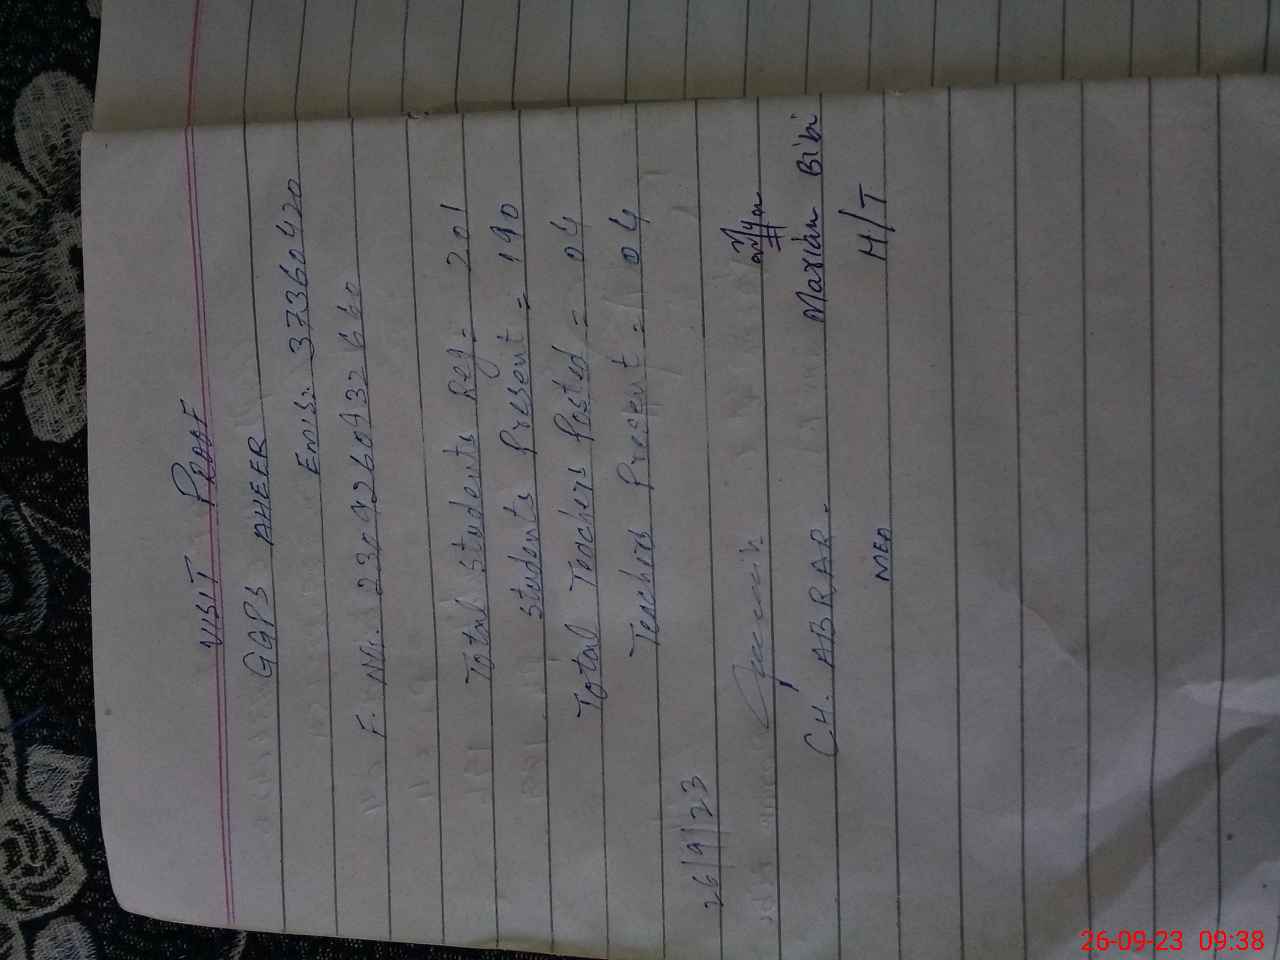 VISIT PROOF
GGPS AHEER
Emis: 37360420
F. No.
Total Students Reg: 201
Students Present = 190
Total Teachers Posted = 04
Teachers Present = 04
26/9/23
CH. ABRAR. Mariam Bibi
MEA H/T
26-09-23 09:38